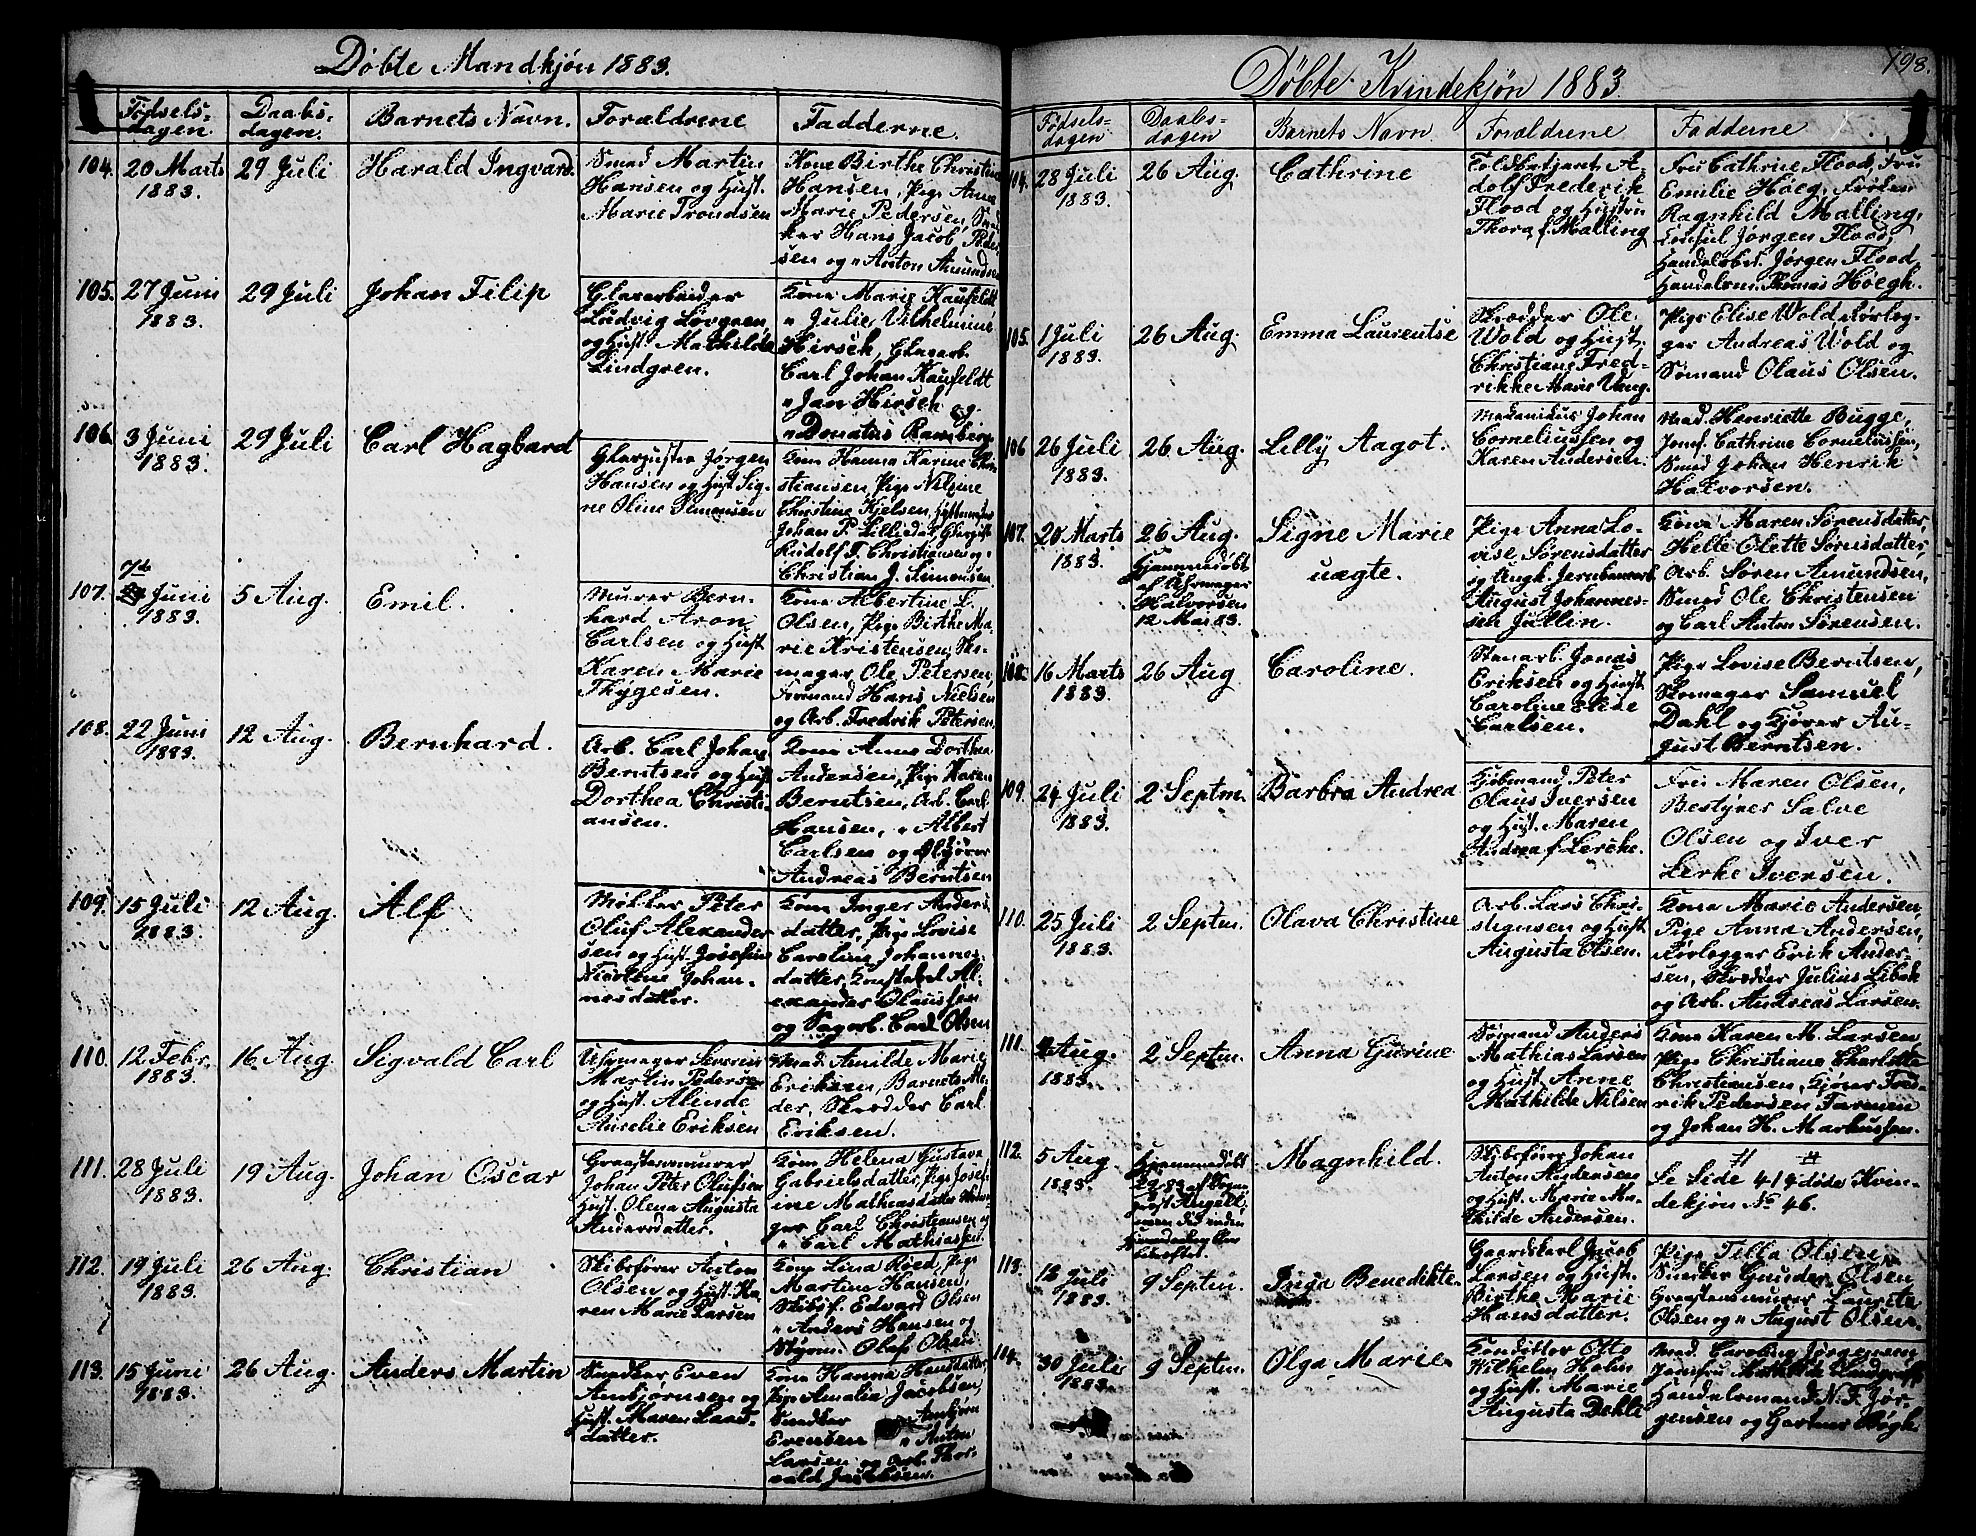 Døbte Mandkjøn 1883.
Fødsels-
dagen.
Daabs-
dagen.
Barnets Navn.
Forældrene
Fadderne.
104. 20 Marts
1883.
29 Juli
Harald Ingvard
Smed Martin
Hansen og Hust.
Marie Trondsen
Kone Birthe Christine
Hansen, Pige Anna
Marie Pedersen, Sned-
ker Hans Jacob Peder-
sen og Anton Amundsen
105. 27 Juni
1883.
29 Juli
Johan Filip
Glasarbeider
Ludvig Løvgren,
og Hust. Mathilde
Lindgren.
Kone Marie Kaufeldt
" Julie Vilhelmine
Hirsch, Glasarb.
Carl Johan Kaufeldt
" Jan Hirsch og
" Donatus
106. 3 Juni
1883.
29 Juli
Carl Hagbard
Jørgen
Hansen og Hust. Sig-
ne Oline Simonsen
Kone Hanna Karine Chri-
stiansen, Pige Nilsine
Christine Kjelsen,
Johan P.
Rudolf F. Christiansen og
Christian J. Simonsen.
107. 7de Juni
1883.
5 Aug.
Emil.
Murer Bern-
hard Aron
Carlsen og Hust.
Karen Marie
Thygesen.
Kone Albertine L.
Olsen, Pige Birthe Ma-
rie Kristensen, Sko-
mager Ole Petersen,
Formand Hans Nielsen
og Arb. Fredrik Petersen.
108. 22 Juni
1883.
12 Aug.
Bernhard.
Arb. Carl Johan
Berntsen og Hust
Dorthea Christi-
ansen.
Kone Anne Dorthea
Andersen, Pige Karen
Berntsen, Arb. Carl
Hansen, " Albert
Carlsen og
Andreas Berntsen
109. 15 Juli
1883.
12 Aug.
Alf
Møkker Peter
Oluf Alexander
sen og Hust. Josefine
Nicoline Johan-
nesdatter.
Kone Inger Anders
datter, Pige Lovise
Caroline Johannes-
datter, Konstabel Al-
exander Olaussen
og Sagarb. Carl Olsen
110. 12 Febr.
1883.
16 Aug.
Sigvald Carl
Uhrmager Severin
Martin Pedersen
og Hust. Alende
Aurelie Eriksen
Mad. Amilde Marie
Eriksen, Barnets Mo-
der, Skrædder Carl
Eriksen.
111. 28 Juli
1883.
19 Aug.
Johan Oscar
Graastensmurer
Johan Peter Olufsen
Hust. Olena Augusta
Andersdatter.
Kone Helena Gustava
Gabrielsdatter, Pige Josef-
ine Mathiasdatter,
ger Carl Christiansen og
" Carl Mathiassen.
112. 19 Juli
1883.
26 Aug.
Christian
Skibsfører Anton
Olsen og Hust. Ka-
ren Marie Larsen
Kone Lina Røed, Pige
Martine Hansen,
Skibsf. Edvard Olsen
" Anders Hansen og
Styrm. Olaf Olsen
113. 15 Juni
1883.
26 Aug.
Anders Martin
Snedker Even
Ambjørnsen og
Hust. Maren Lars-
datter.
Kone Hanna Hansdatter,
Pige Amalia Jacobsen,
Snedker Ambjørn
Evensen " Anton
Larsen og Arb. Thor-
vald Jacobsen.
198.
Døbte Kvindekjøn 1883.
Fødsels-
dagen
Daabs-
dagen
Barnets Navn.
Forældrene
Fadderne
104. 28 Juli
1883.
26 Aug.
Cathrine
Toldbetjent A-
dolf Frederik
Flood og Hustru
Thora f. Malling
Fru Cathrine Flood, Fru
Emilie Høeg, Frøken
Ragnhild Malling,
Consul Jørgen Flood,
Handelsbet. Jørgen Flood,
Handelsm. Thomas Höegh.
105. 1 Juli
1883.
26 Aug.
Emma Laurentse
Skrædder Ole
Wold og Hust.
Christiane Fred-
rikke Marie Vang.
Pige Elise Wold, Forlæg-
ger Andreas Wold og
Sømand Olaus Olsen.
106 26 Juli
1883.
26 Aug.
Lilly Aagot.
Mekanikus Johan
Corneliussen og
Karen Andersen.
Mad. Henriette Bugge,
Jomf. Cathrine Corneliussen,
Smed Johan Henrik
Halvorsen.
107. 20 Marts
1883.
26 Aug.
Hjemmedøbt
af Uhrmager
Halvorsen
12 Mai 83.
Signe Marie
uægte.
Pige Anna Lo-
vise Sørensdatter
og Ungk. Jernbanearb.
August Johannes-
sen Jullin.
Kone Maren Sørensdatter,
Helle Olette Sørnsdatter
Arb. Søren Amundsen,
Smed Ole Christensen
og Carl Anton Sørensen.
108. 16 Marts
1883.
26 Aug
Caroline.
Stenarb. Jonas
Eriksen og Hust.
Caroline Elise
Carlsen.
Pige Lovise Berntsen,
Skomager Samuel
Dahl og Kjører Au-
gust Berntsen.
109. 24 Juli
1883.
2 Septm.
Barbra Andrea
Kjøbmand Peter
Olaus Iversen
og Hust. Maren
Andrea f. Lerche.
Fru Maren Olsen,
Bestyrer Salve
Olsen og Iver
Lerke Iversen.
110. 25 Juli
1883.
2 Septm.
Olava Christine
Arb. Lars Chri-
stiansen og Hust
Augusta Olsen.
Kone Marie Andersen,
Pige Anna Andersen,
Forlægger Erik Ander-
sen, Skrædder Julius Libæk
og Arb. Andreas Larsen.
111. 2 Aug.
1883.
2 Septm.
Anna Gurine
Sømand Anders
Mathias Larsen
og Hust. Anne
Mathilde Nilsen
Kone Karen M. Larsen,
Pige Christiane Charlotte
Christiansen, Kjører Fred-
rik Pedersen Farmen
og Johan H. Markussen.
112. 5 Aug
1883.
Hjemmedøbt
Magnhild.
Skibsfører Johan
Anton Andersen
og Hust. Marie Ma-
thilde Andersen.
Se Side 414 døde Kvin-
dekjøn No 46.
113. 12 Juli
1883.
9 Septm.
Inga Benedikte
Gaardskarl Jacob
Larsen og Hust.
Birthe Marie
Hansdatter.
Pige Tilla Olsen,
Snedker Gunder Olsen
Graastensmurer Laurits
Olsen og " August Olsen.
114. 30 Juli
1883.
9 Septm.
Olga Marie
Konditter Otto
Wilhelm Hohn
og Hust. Marie
Augusta Dehli
Mad. Caroline Jørgensen
Jomfru Mathilde
Handelsmand N. F. Jør-
gensen og Gartner